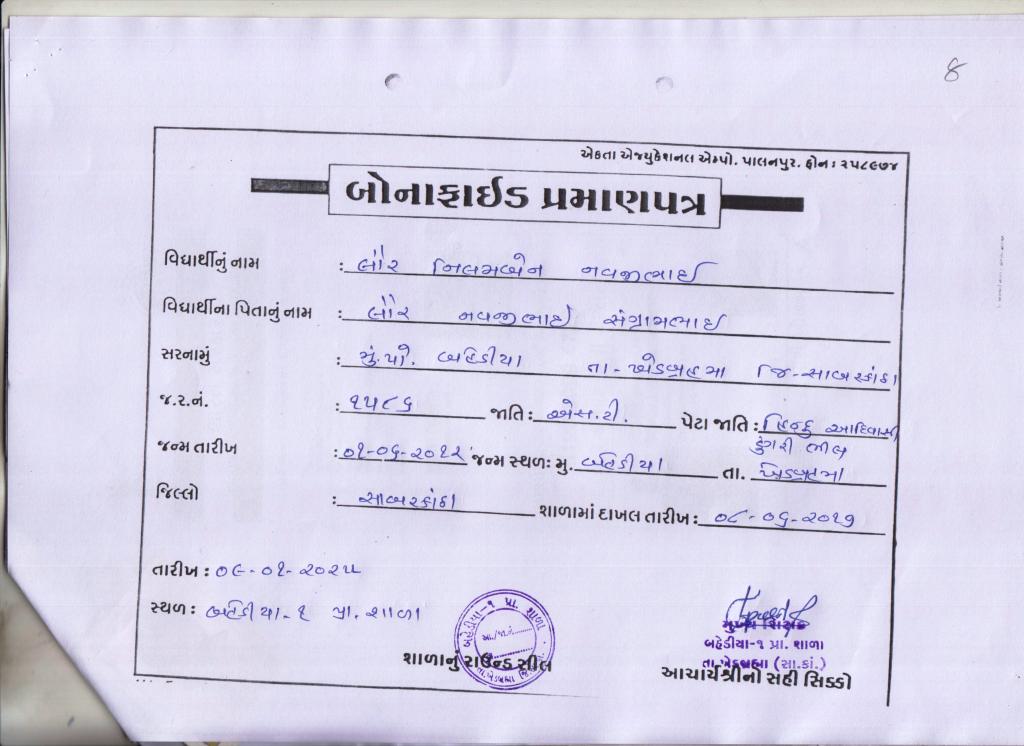 8
એકતા એજ્યુકેશનલ એમ્પો. પાલનપુર. ફોન : ૨૫૮૯૭૪
બોનાફાઈડ પ્રમાણપત્ર
વિદ્યાર્થીનું નામ : બૉર નિલમબેન નવજીભાઈ
વિદ્યાર્થીના પિતાનું નામ : બૉર નવજીભાઈ સંગ્રામભાઈ
સરનામું : મું.પો. બહેડીયા તા-ખેડબ્રહમા જિ-સાબરકાંઠા
જ.ર.નં. : ૧૫૮૬ જાતિ : એસ.ટી. પેટા જાતિ : હિન્દુ આદિવાસી
ડુંગરી ભીલ
જન્મ તારીખ : ૦૧-૦૬-૨૦૧૨ જન્મ સ્થળઃ મુ. બહેડીયા તા. ખેડબ્રહમા
જિલ્લો : સાબરકાંઠા શાળામાં દાખલ તારીખ : ૦૮-૦૬-૨૦૧૭
તારીખ : ૦૯-૦૧-૨૦૨૫
સ્થળ : બહેડીયા-૧ પ્રા.શાળા
બહેડીયા-૧ પ્રા. શાળા
આ./જા.નં.
તા.ખેડબ્રહ્મા
શાળાનું રાઉન્ડ સીલ
મુખ્ય શિક્ષક
બહેડીયા-૧ પ્રા. શાળા
તા.ખેડબ્રહ્મા (સા.કાં.)
આચાર્યશ્રીનો સહી સિક્કો